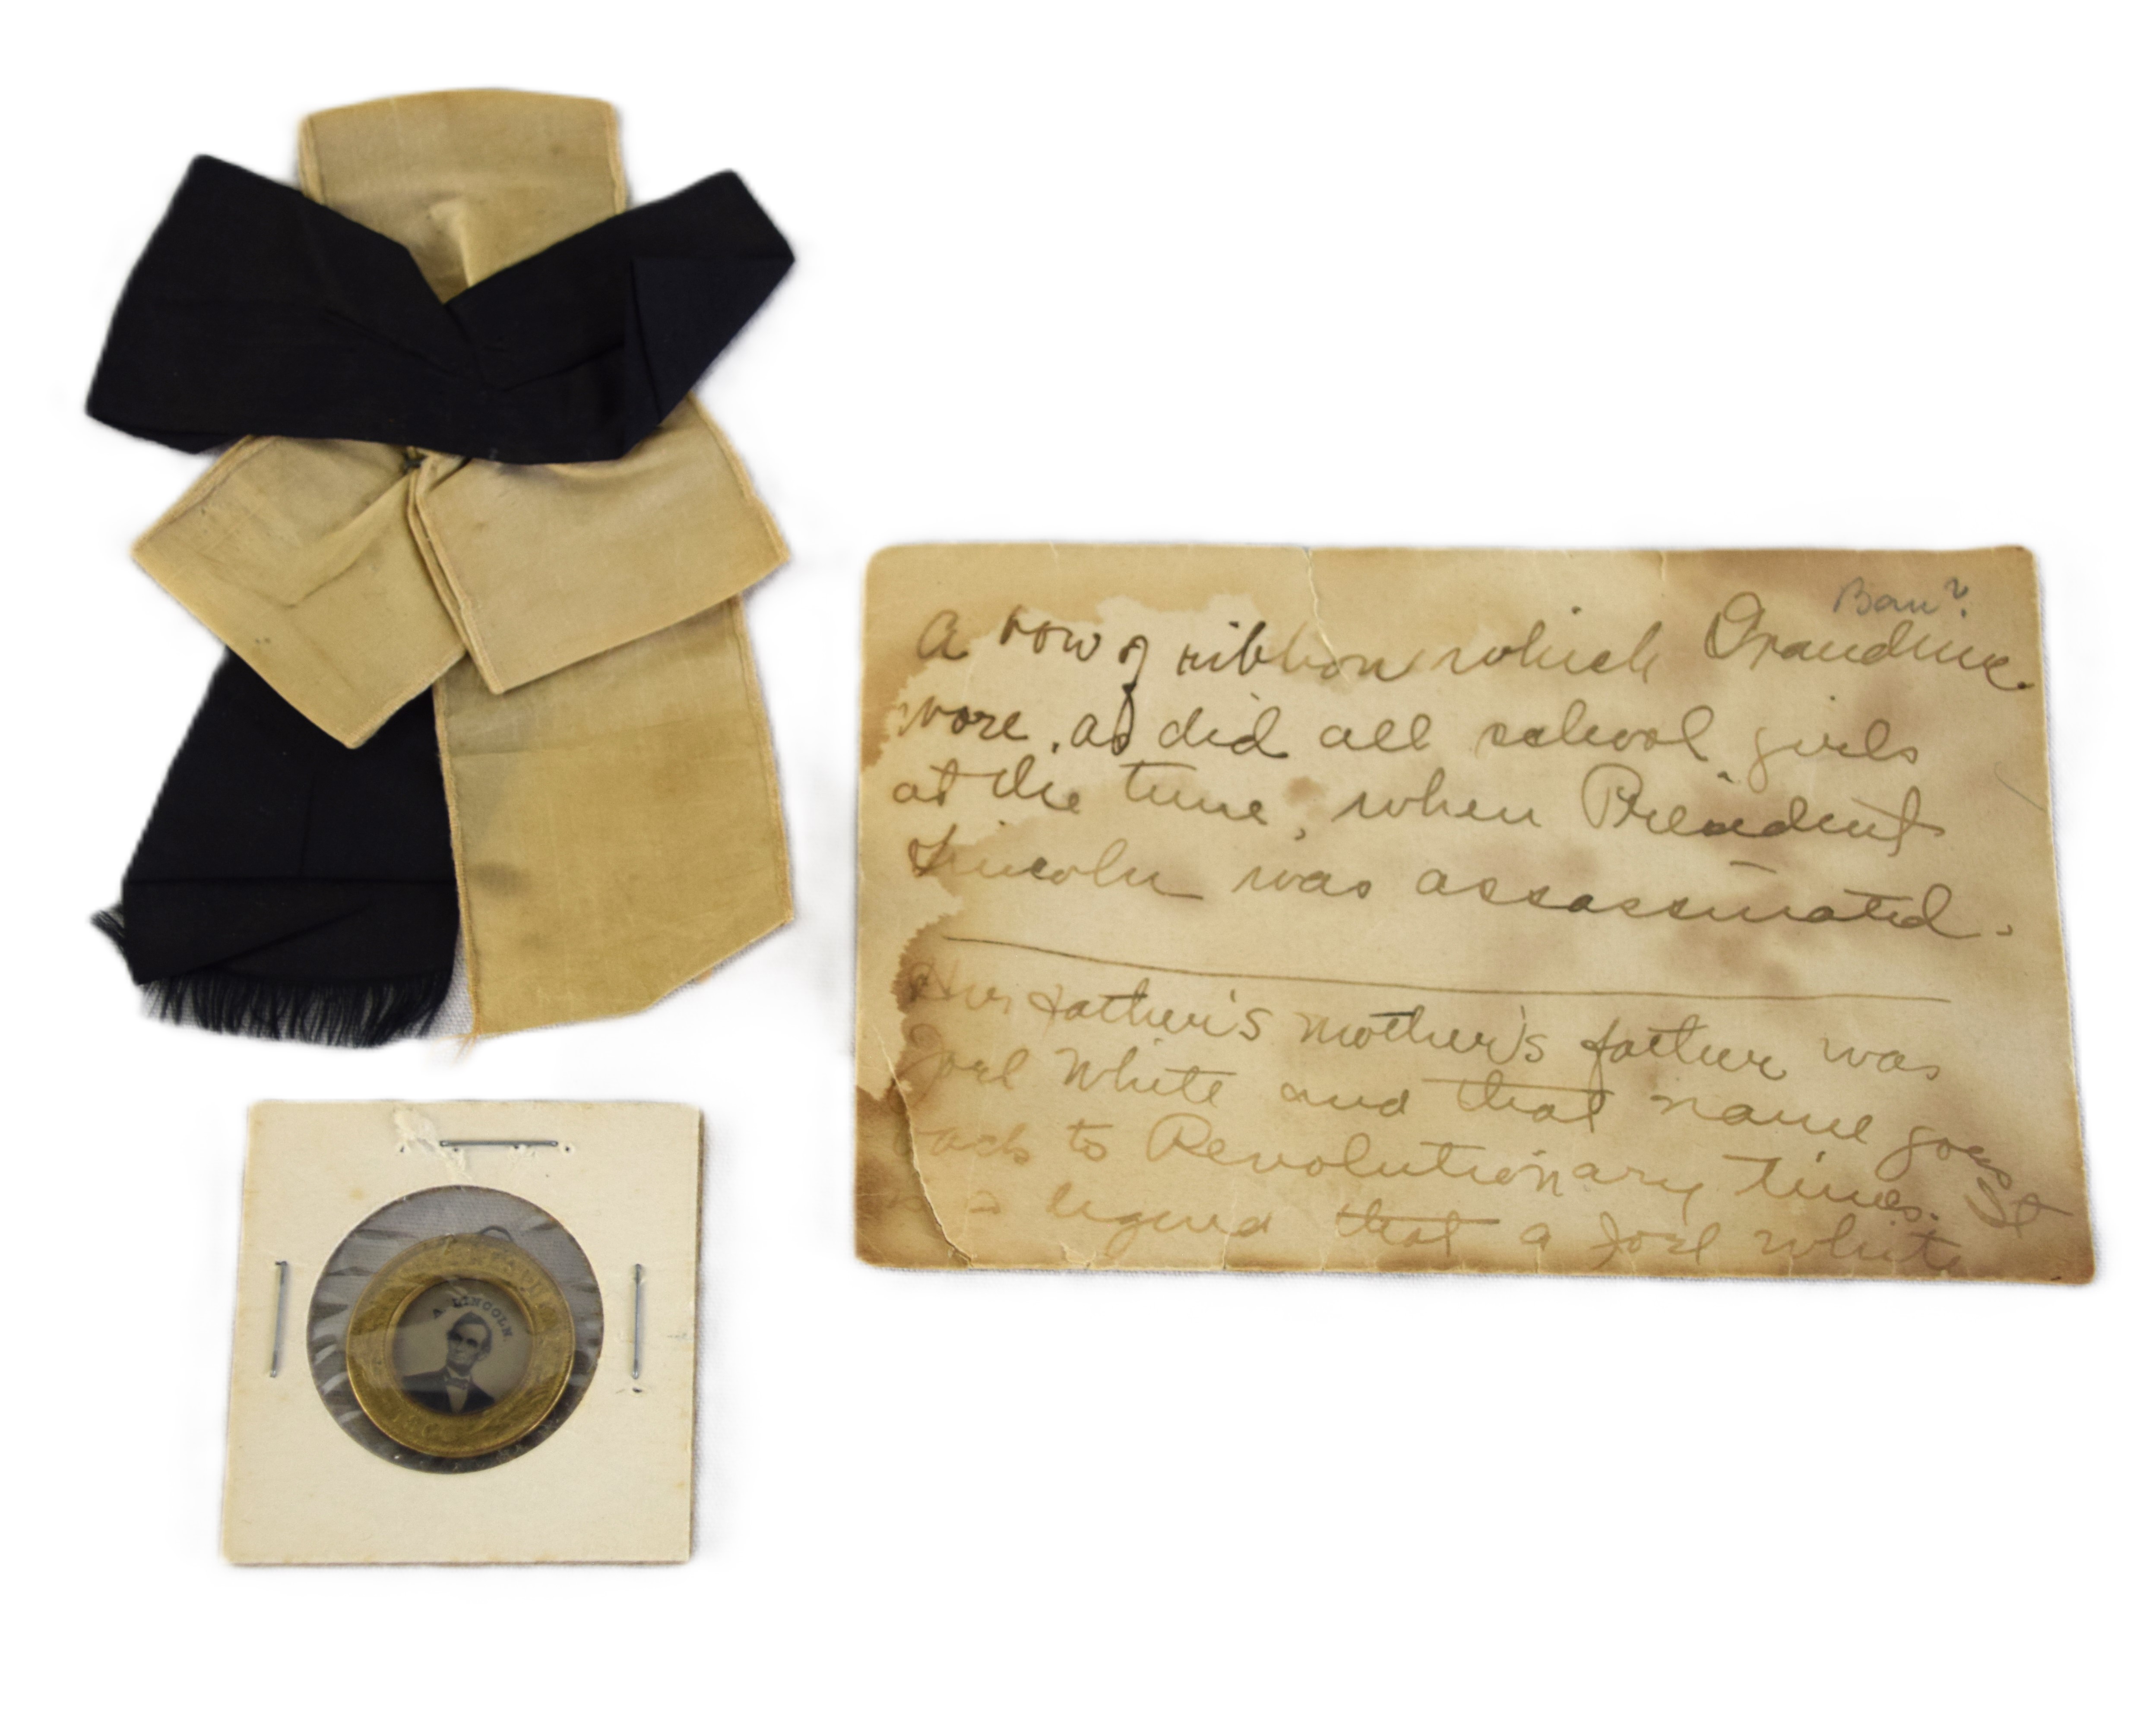 A. LINCOLN.
A bow of ribbon which Grandma
wore, as did all school girls
at the time, when President
Lincoln was assassinated.
Her father's mother's father was
Joel White and that name goes
back to Revolutionary times. It
is a legend that a Joel White